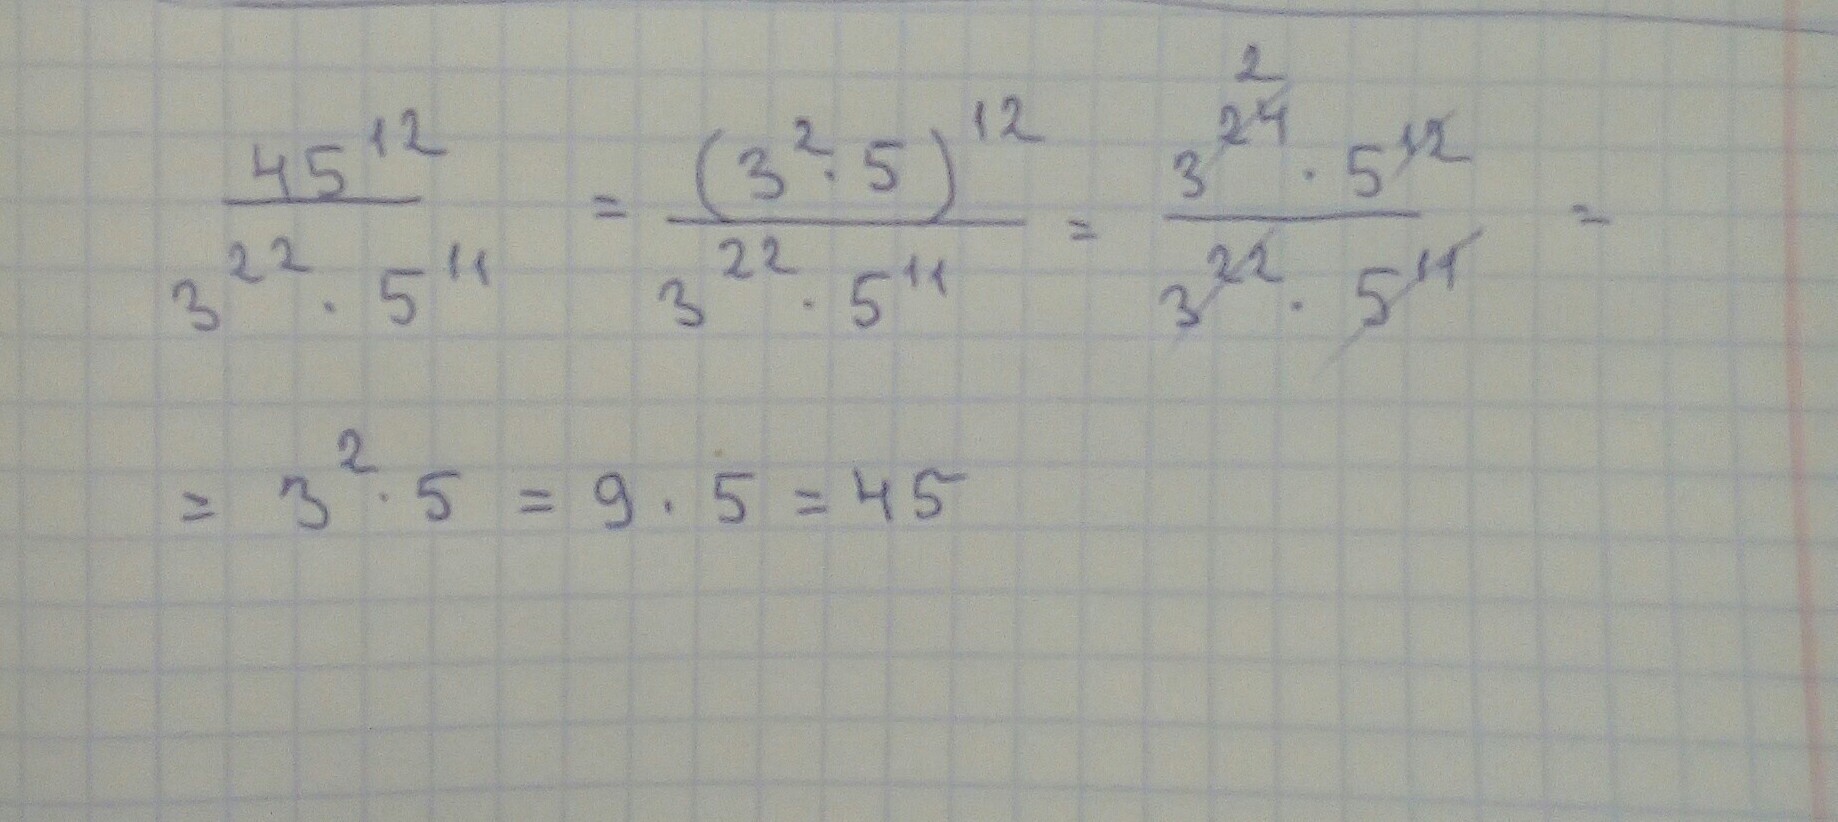 45^12 / (3^22 · 5^11) = (3^2 · 5)^12 / (3^22 · 5^11) = 3^24 2 · 5^12 / (3^22 · 5^11) =
= 3^2 · 5 = 9 · 5 = 45